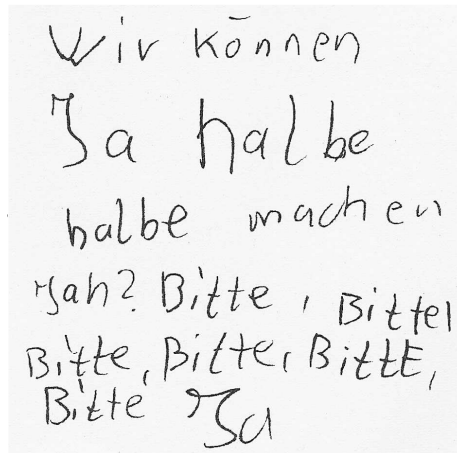 Wir können
Ja halbe
halbe machen
Jah? Bitte, Bitte,
Bitte, Bitte, BittE,
Bitte Ja